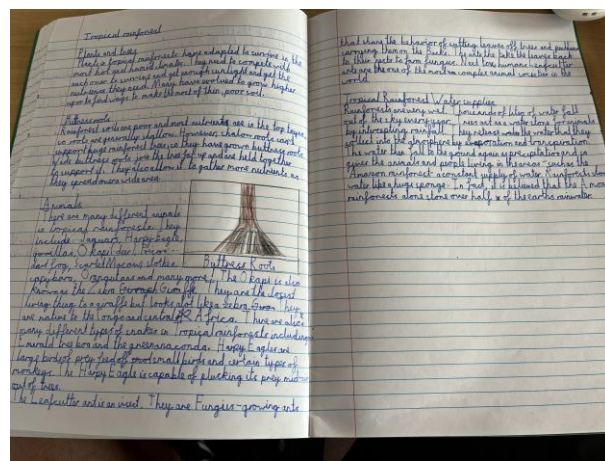 Tropical rainforest
Plants and trees
Plants in tropical rainforests have adapted to survive in the
most hot and humid climate. They need to compete with
each other to survive and get enough sunlight and get the
nutrients they need. Many have evolved to grow higher
up or to find ways to make the most of thin, poor soil.
Buttress roots
Rainforest soils are poor and most nutrients are in the top layer,
so roots are generally shallow. However, shallow roots can't
support huge rainforest trees, so they have grown buttress roots.
Wide buttress roots join the tree far up and are held together
to support it. They also allow it to gather more nutrients as
they spread over a wide area.
Animals
There are many different animals
in tropical rainforests. They
include Jaguars, Harpy Eagle,
gorillas, Okapi
and Scarlet Macaws
capybara, Orangutans and many more! The Okapi is also
Known as the Zebra Giraffe. They are the closest
living thing to a giraffe but looks alot like a zebra. They
are native to the Congo and central Africa. There are also
many different types of snakes in Tropical rainforests including
Emerald tree boa and the green anaconda. Harpy Eagles are
large birds of prey feed off small birds and certain types of
monkeys. The Harpy Eagle is capable of plucking its prey
out of trees.
The Leafcutter ant is an insect. They are Fungus-growing ants
Buttress Roots
that share the behavior of cutting leaves off trees and
carrying them on the backs. The ants the take the leaves back
to their nests to farm fungus. Next to humans leafcutter
ants are the one of the most complex animal societies in the
world.
Tropical Rainforest Water supplies
Rainforests are very wet. Thousands of litres of water fall
out of the sky every year. Trees act as a water store for animals
by intercepting rainfall. They release the water that they
collect into the atmosphere by evaporation and transpiration
The water then falls to the ground again as precipitation and
gives the animals and people living in the area - such as the
Amazon rainforest a constant supply of water. Rainforests store
water like a huge sponge. In fact, it is believed that the Amazon
rainforests alone store over half of the earths rainwater.